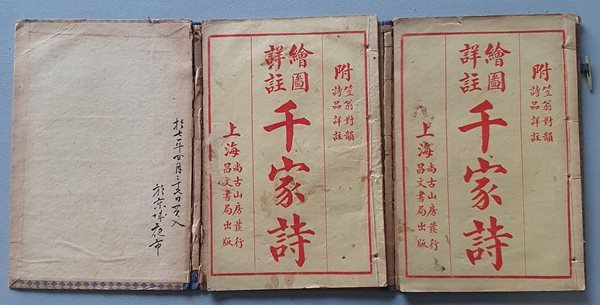 附
笠翁對韻
詩品詳註
繪圖
詳註
千家詩
上海
尚古山房發行
昌文書局出版
附
笠翁對韻
詩品詳註
繪圖
詳註
千家詩
上海
尚古山房發行
昌文書局出版
於七年四月二日買入
於京夜市